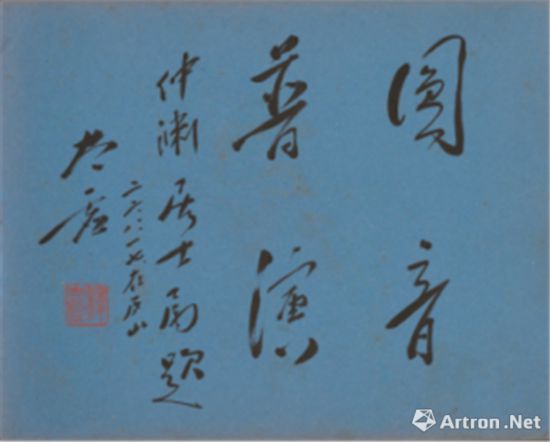 圓音
普演
仲渊居士属题
二六、八、一七在庐山
太虛
Artron.Net